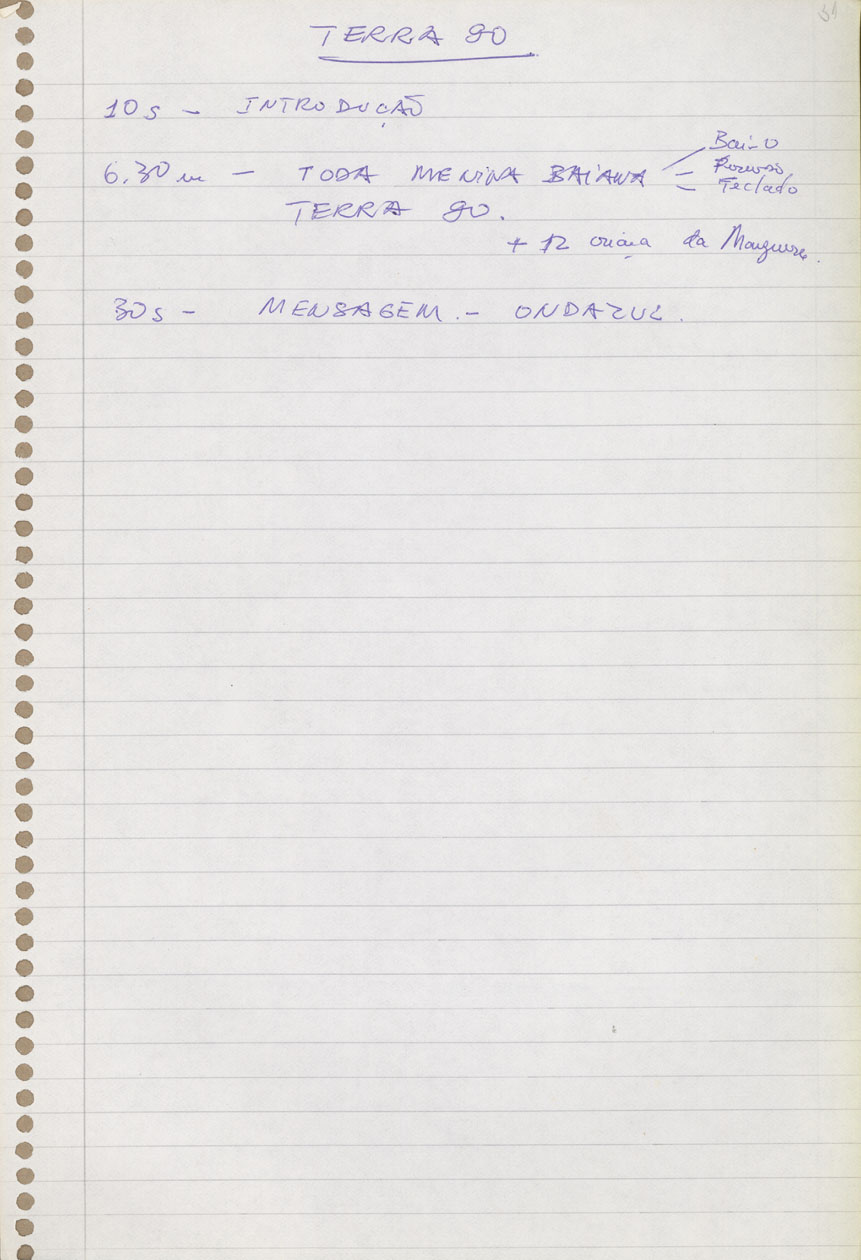 51
TERRA 90
10s - INTRODUÇÃO
6.30m - TODA MENINA BAIANA
Baixo
Percussão
Teclado
TERRA 90.
+ 12 criança da Mangueira.
30s - MENSAGEM. - ONDAZUL.